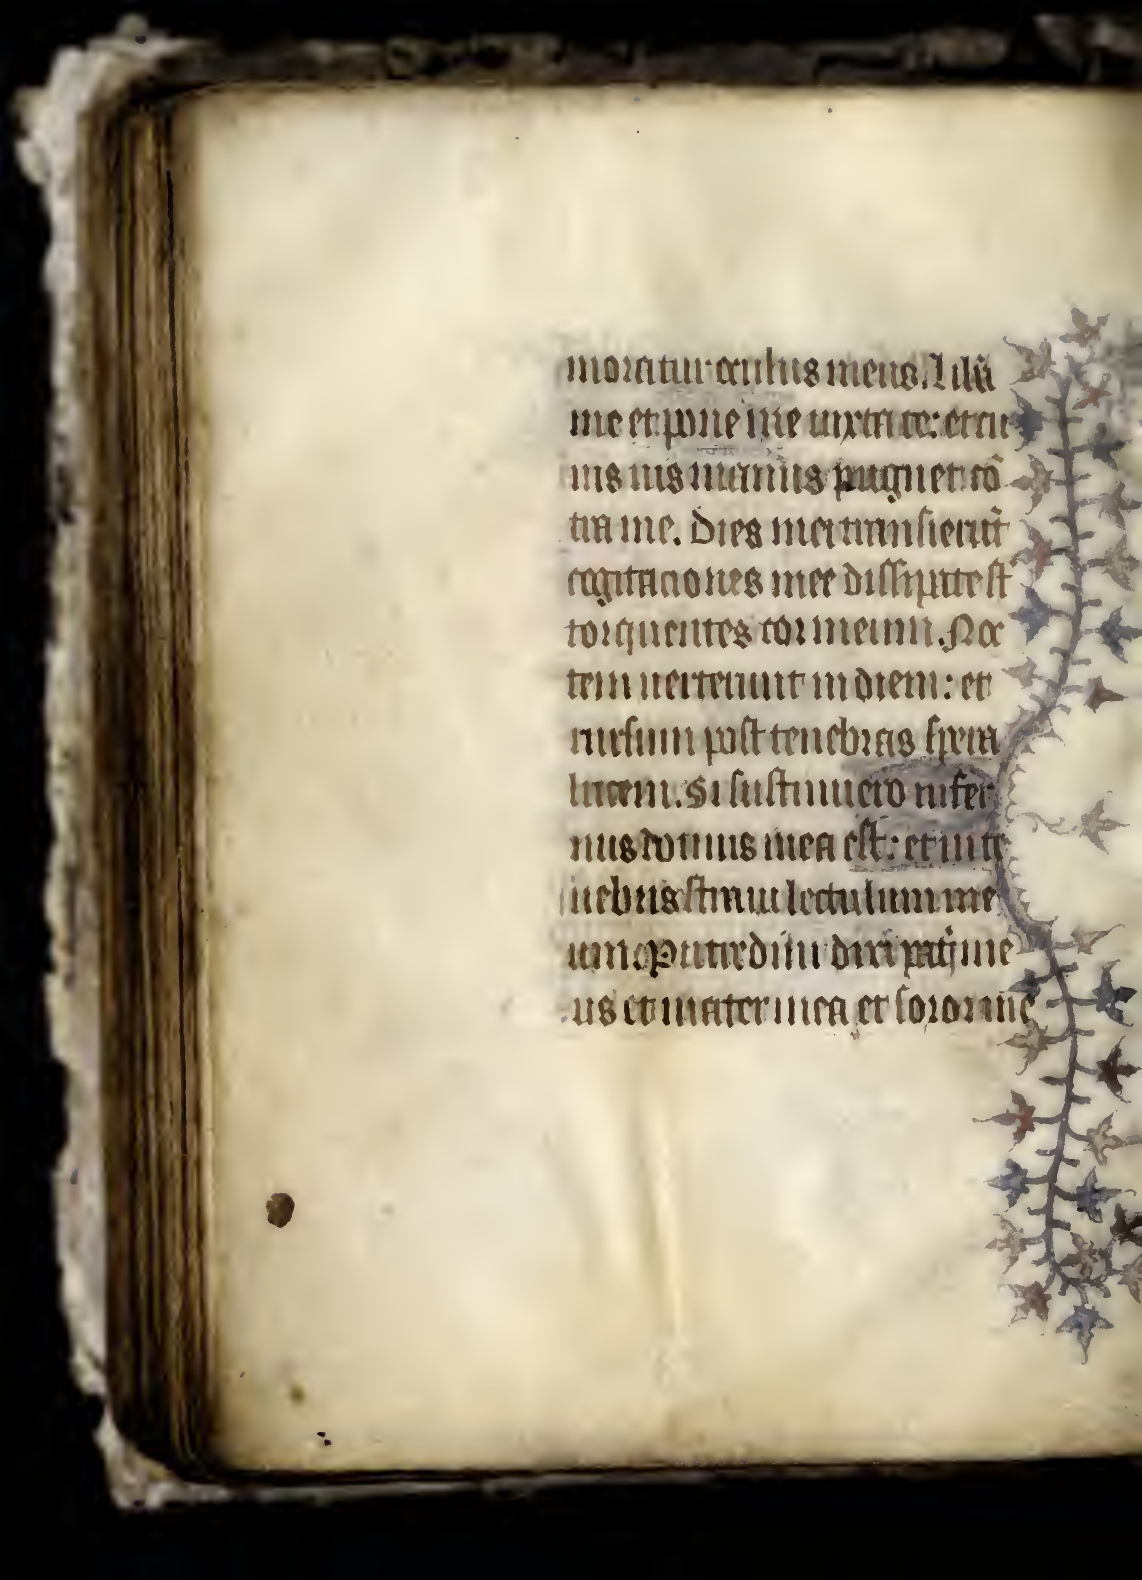 moratur oculus meus. Lib̄a
me et pone me iuxta te: et cu
ius uis manus pugnet cō
tra me. Dies mei transierūt
cogitaciones mee dissipate st̄
torquentes cor meum. Noc
tem uerterunt in diem: et
rursum post tenebras spero
lucem. Si sustinuero infer
nus domus mea est: et in te
nebris straui lectulum me
um. Putredini dixi pat̄ me
us et mater mea et soror me